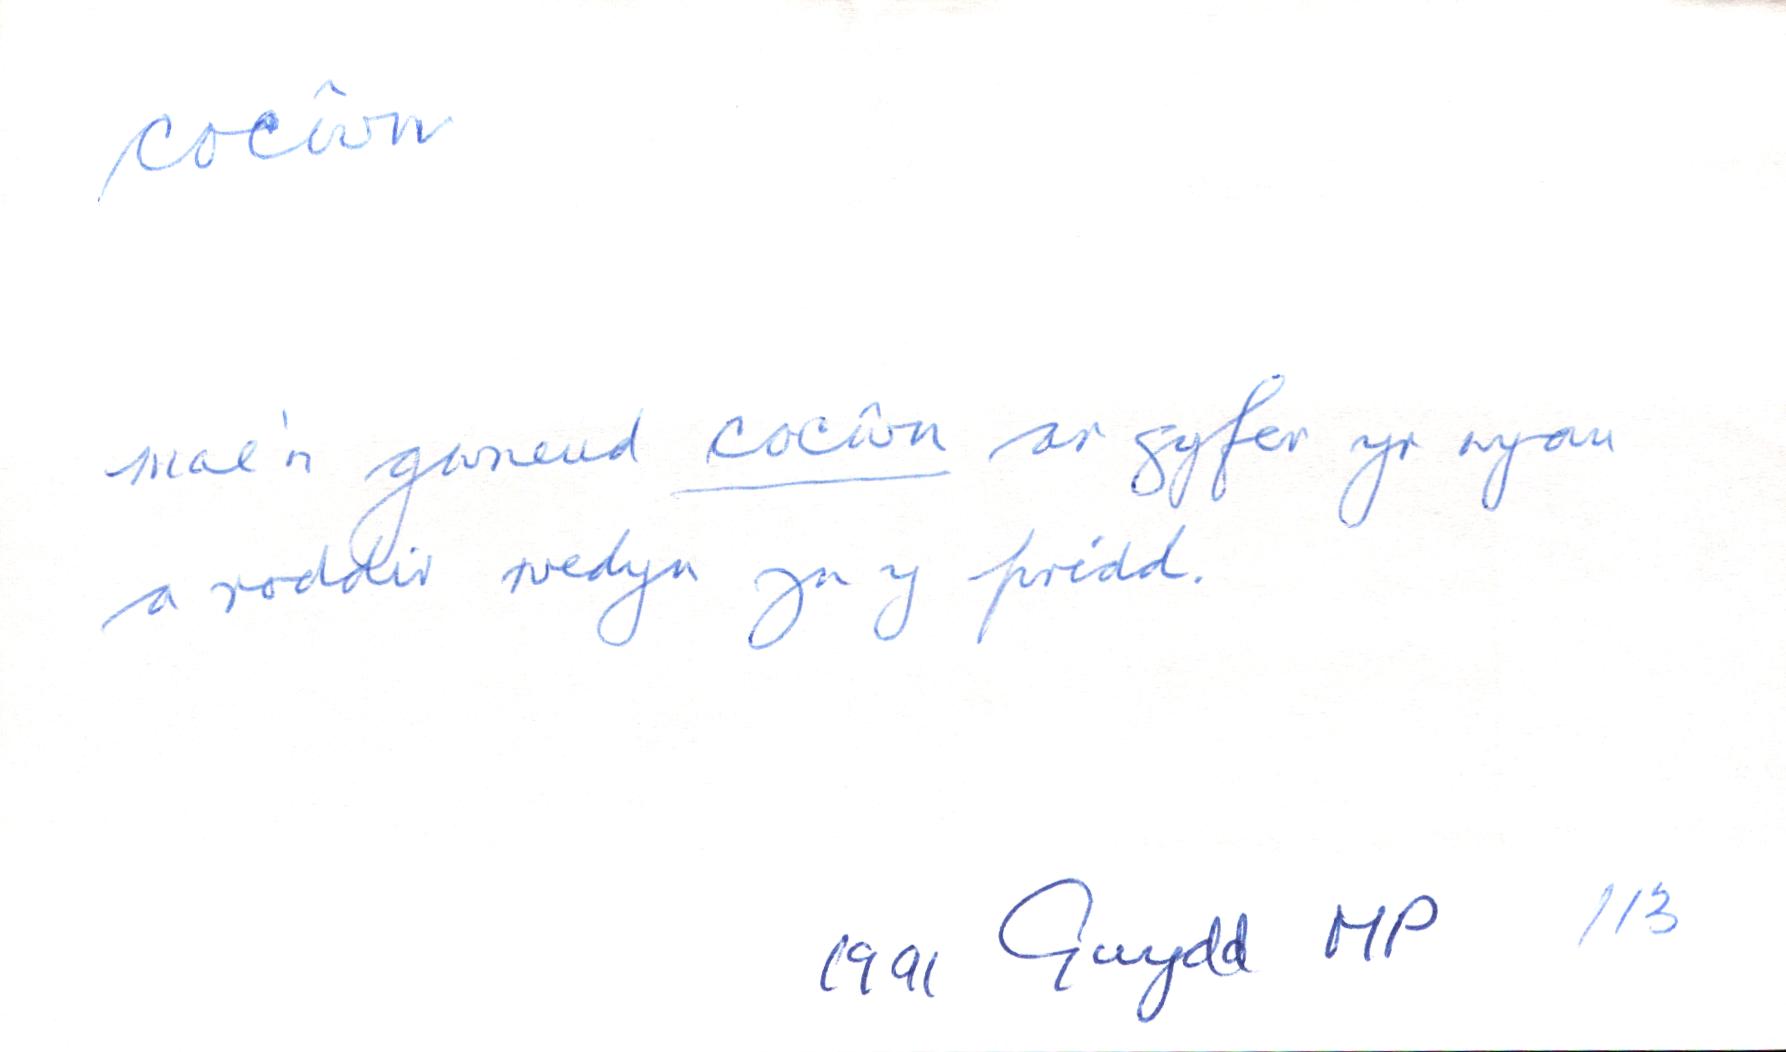 cocŵn
mae'n gwneud cocŵn ar gyfer yr wyau
a roddir wedyn yn y pridd.
1991 Gwydd MP 113